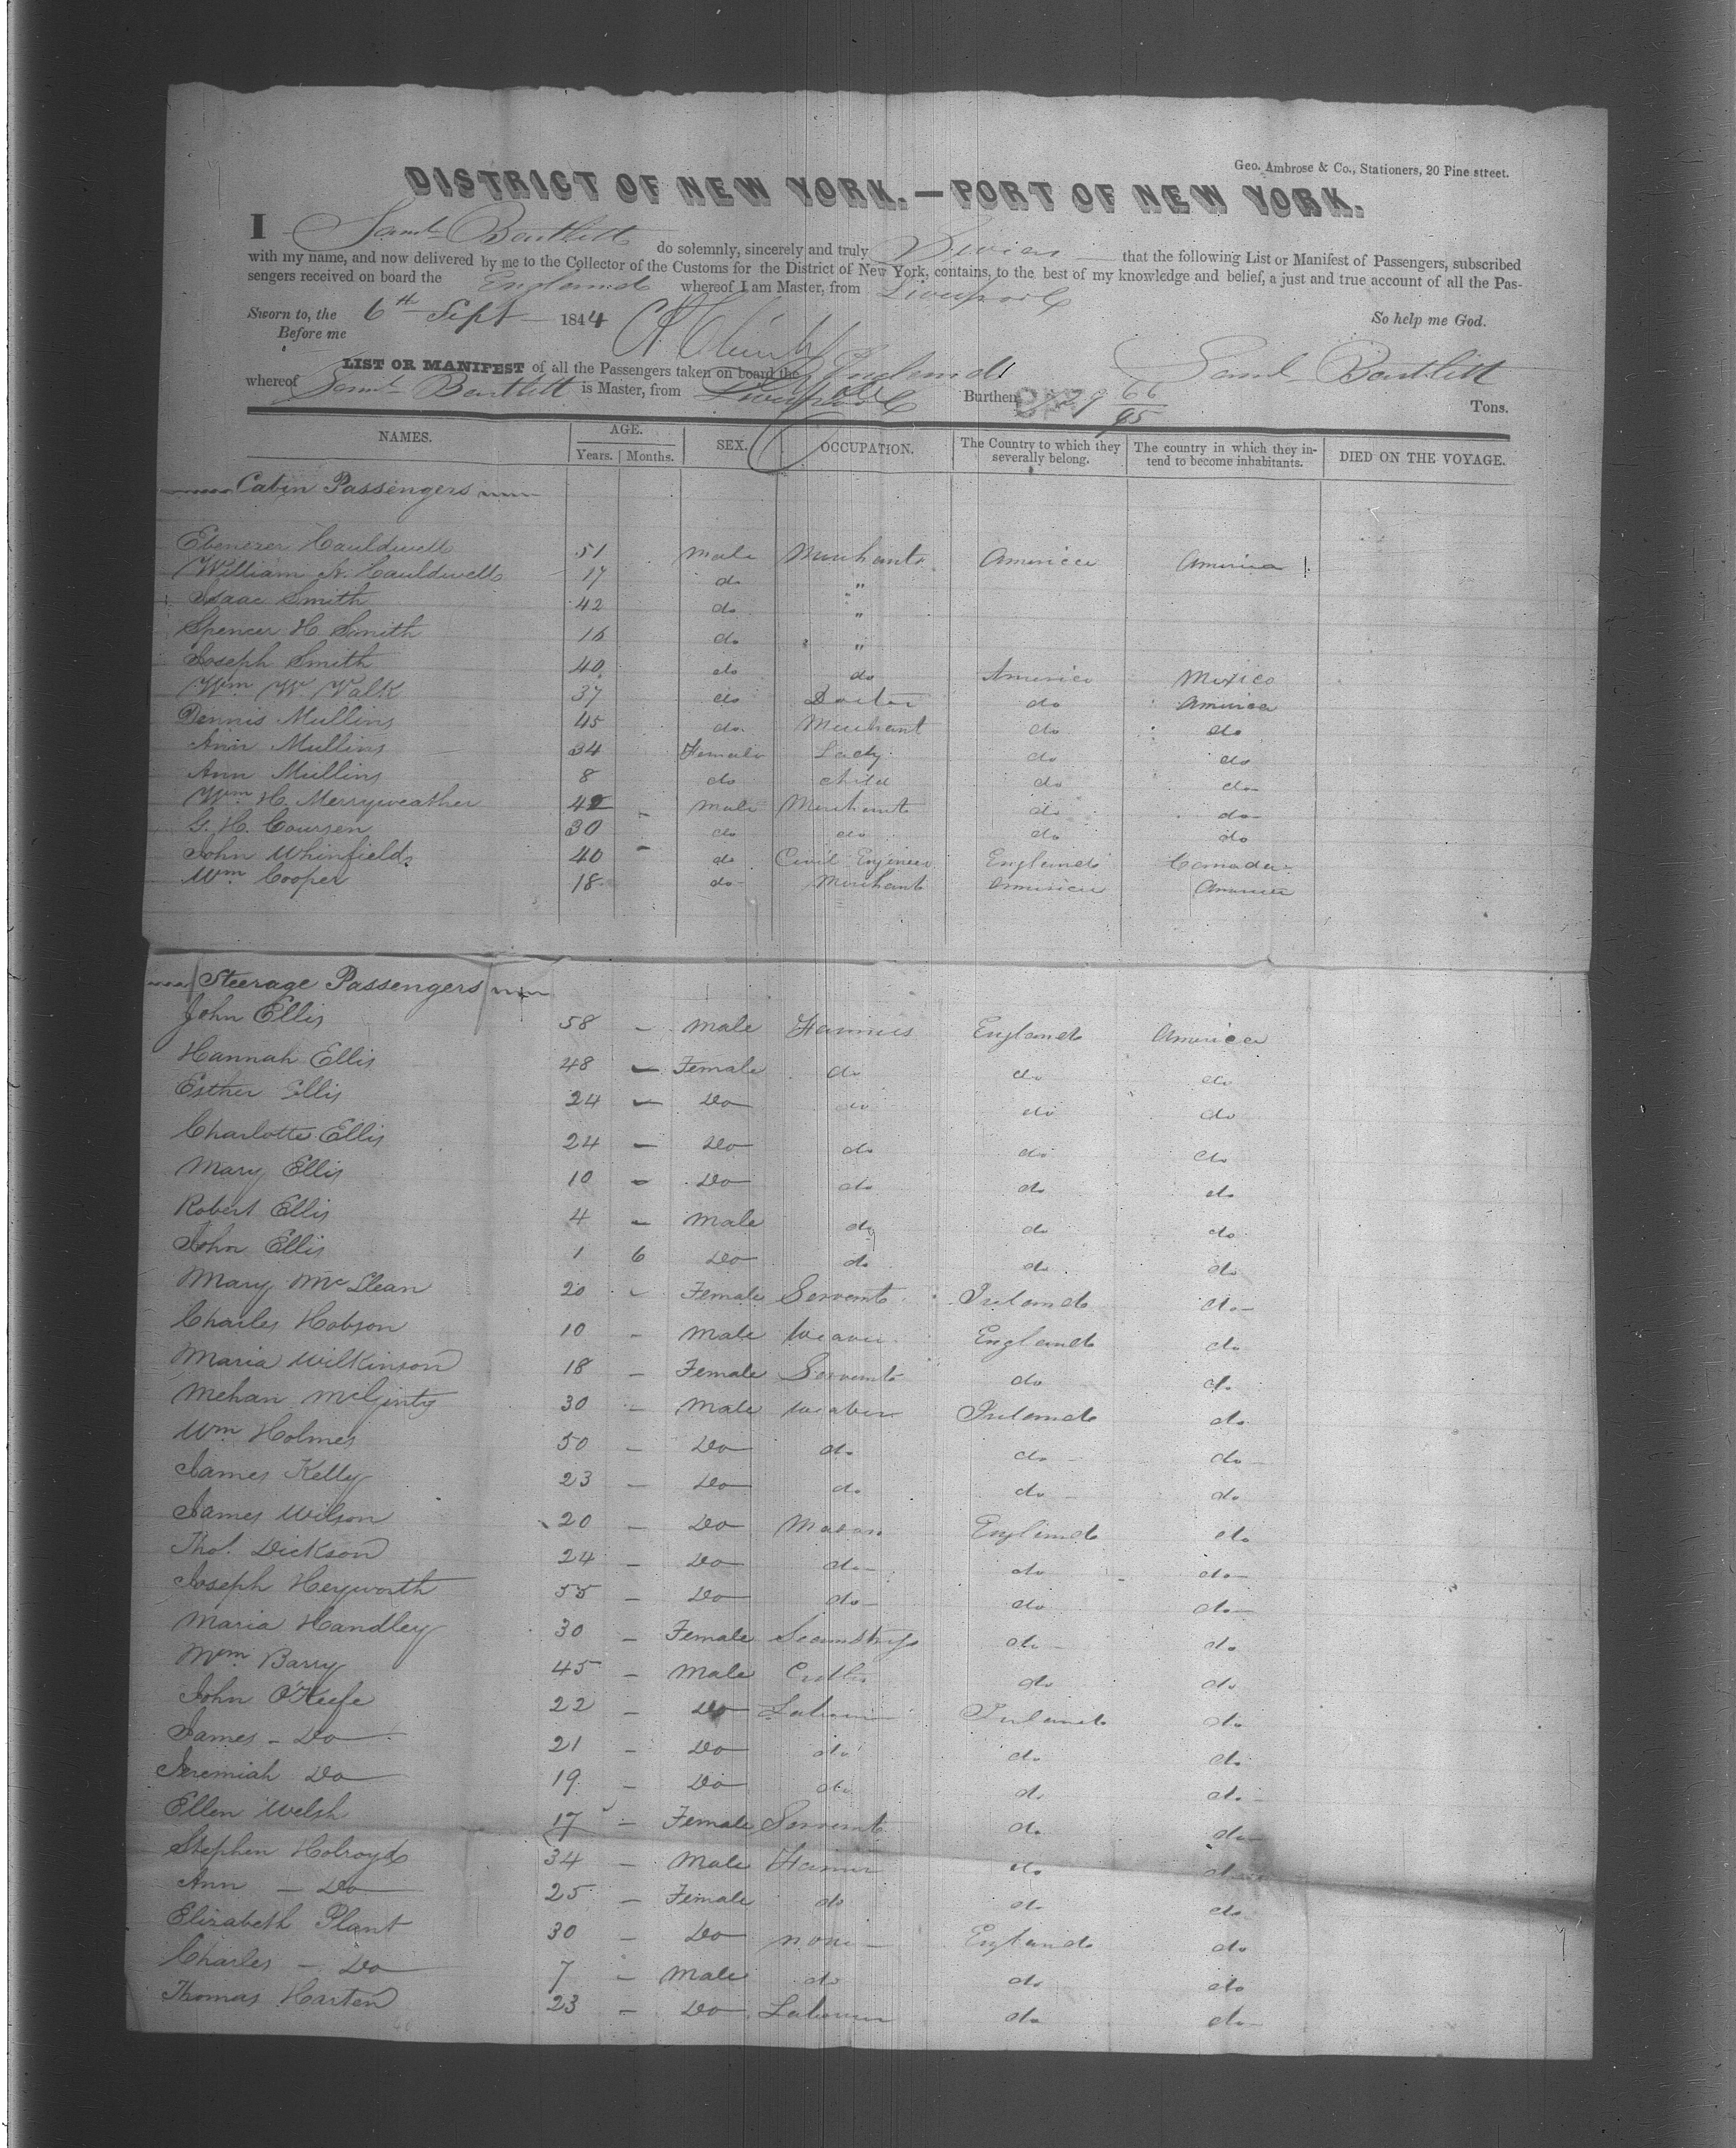 Geo. Ambrose & Co., Stationers, 20 Pine street.
DISTRICT OF NEW YORK.—PORT OF NEW YORK.
I Saml Bartlett do solemnly, sincerely and truly that the following List or Manifest of Passengers, subscribed
with my name, and now delivered by me to the Collector of the Customs for the District of New York, contains, to the best of my knowledge and belief, a just and true account of all the Pas-
sengers received on board the England whereof I am Master, from Liverpool
Sworn to, the 6th Sept 1844 So help me God.
Before me
LIST OR MANIFEST of all the Passengers taken on board the England Saml Bartlett
whereof Saml Bartlett is Master, from Liverpool Burthen 729 66/95 Tons.
NAMES. AGE. Years. Months. SEX. OCCUPATION. The Country to which they severally belong. The country in which they intend to become inhabitants. DIED ON THE VOYAGE.
Cabin Passengers
Ebenezer Cauldwell 51 male Merchant America America
William N. Cauldwell 17 do "
Isaac Smith 42 do "
Spencer H Smith 16 do "
Joseph Smith 40 do do America Mexico
Wm W Valk 37 do Doctor do America
Dennis Mullins 45 do Merchant do do
Ann Mullins 34 Female Lady do do
Ann Mullins 8 do child do do
Wm H. Merryweather 42 male Merchant do do
G. H. Coursen 30 do do do do
John Whinfield 40 do Civil Engineer England Canada
Wm Cooper 18 do Merchant America America
Steerage Passengers
John Ellis 58 – Male Farmers England America
Hannah Ellis 48 – Female do do do
Esther Ellis 24 – Do do do do
Charlotte Ellis 24 – Do do do do
Mary Ellis 10 – Do do do do
Robert Ellis 4 – Male do do do
John Ellis 1 6 Do do do do
Mary McLean 20 – Female Servant Ireland do
Charles Hobson 10 – Male Weaver England do
Maria Wilkinson 18 – Female Servant do do
Mehan McGinty 30 – Male Weaver Ireland do
Wm Holmes 50 – Do do do do
James Kelly 23 – Do do do do
James Wilson 20 – Do Mason England do
Thos. Dickson 24 – Do do do do
Joseph Heyworth 55 – Do do do do
Maria Handley 30 – Female Seamstress do do
Wm Barry 45 – Male Cutler do do
John O'Keefe 22 – Do Labourer Ireland do
James – Do 21 – Do do do do
Jeremiah Do 19 – Do do do do
Ellen Welsh 17 – Female Servant do do
Stephen Holroyd 34 – Male Farmer do do
Ann – Do 25 – Female do do do
Elizabeth Plant 30 – Do none England do
Charles – Do 7 – Male do do do
Thomas Harten 23 – Do Labourer do do